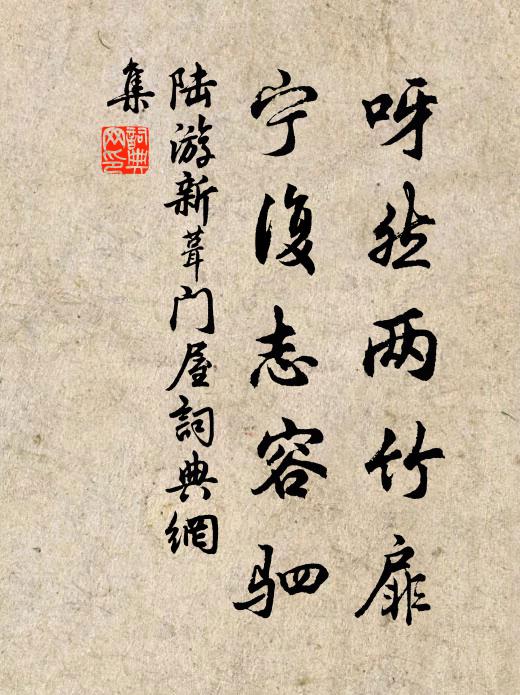 呀然两竹扉
宁復志容驷
陆游新葺门屋詞典網
集
詞典網印